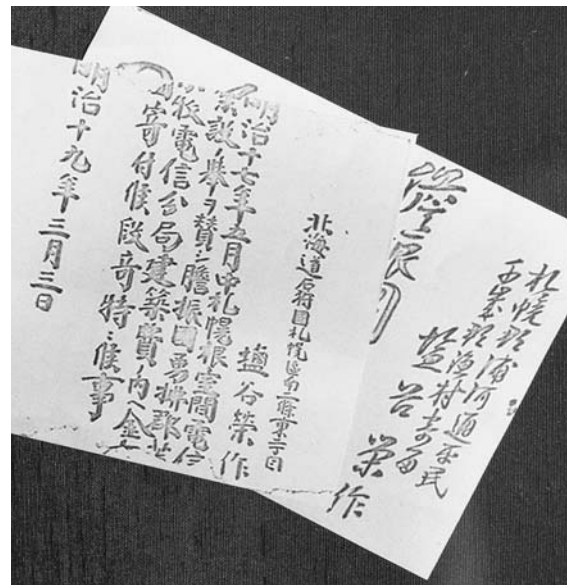 札幌郡浦河通平民
千歳郡漁村寄留
塩谷栄作
北海道石狩國札幌區南二條東二丁目
塩谷榮作
明治十七年五月中札幌根室間電信
架設ノ擧ヲ賛シ膽振國勇拂郡苫
牧電信分局建築費ノ内ヘ金
寄付候段奇特ニ候事
明治十九年三月三日